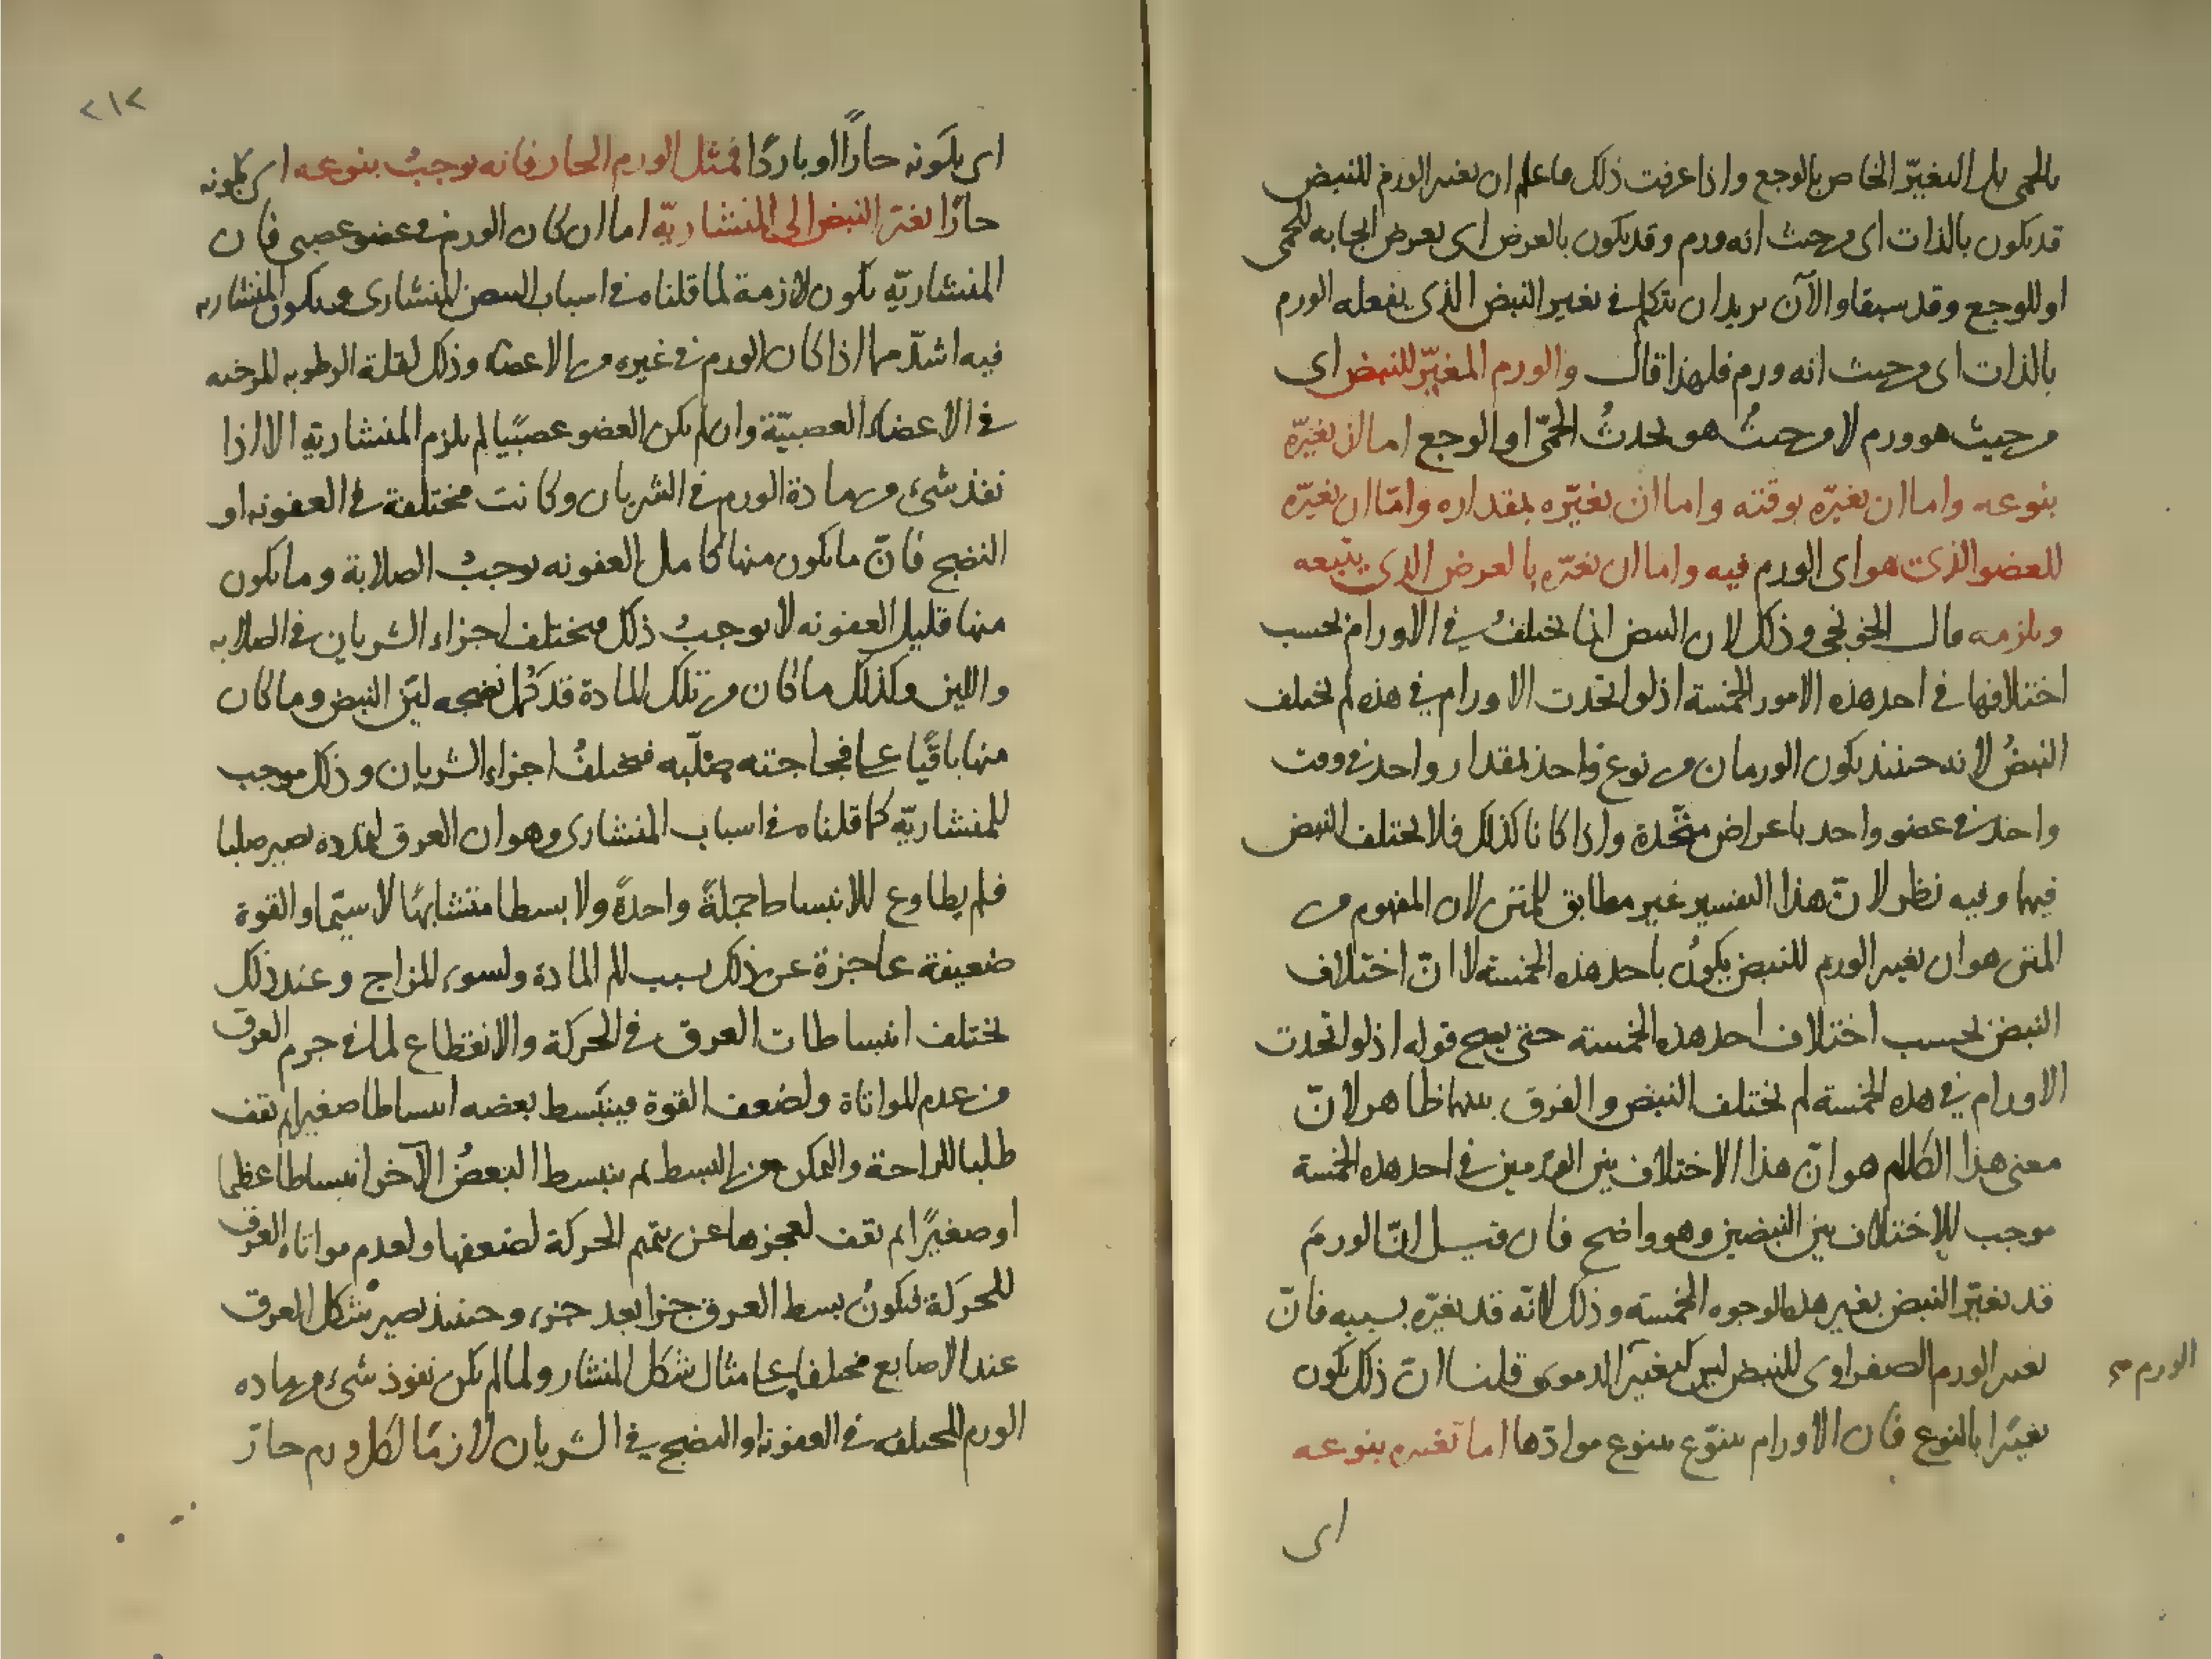 بالحمى بل التغيّر الخاص بالوجع واذا عرفت ذلك فاعلم ان تغير الورم للنبض
قد يكون بالذات اى من حيث انه ورم وقد يكون بالعرض اى بعرض ايجابه للحمى
او للوجع وقد سبقا والآن يريد ان يتكلم فى تغير النبض الذى يفعله الورم
بالذات اى من حيث انه ورم فلهذا قال والورم المغيّر للنبض اى
من حيث هو ورم لا من حيثُ هو يحدثُ الحمّى او الوجع اما ان يغيّره
بنوعه واما ان يغيّره بوقته واما ان يغيّره بمقداره وامّا ان يغيّره
للعضو الذى هو اى الورم فيه واما ان يغيّره بالعرض الذى يتبعه
ويلزمه قال الخونجى وذلك لان النبض انما يختلفُ فى الاورام بحسب
اختلافها فى احد هذه الامور الخمسة اذ لو اتحدت الاورام فى هذه لم يختلف
النبضُ لانه حينئذ يكون الورمان من نوع واحد بمقدار واحد فى وقت
واحد فى عضو واحد باعراض متّحدة واذا كانا كذلك فلا يختلف النبض
فيهما وفيه نظر لانّ هذا التفسير غير مطابق للمتن لان المفهوم من
المتن هو ان تغير الورم للنبض يكونُ باحد هذه الخمسة لا انّ اختلاف
النبض بحسب اختلاف احد هذه الخمسة حتى يصح قوله اذ لو اتحدت
الاورام فى هذه الخمسة لم يختلف النبض والفرق بينهما ظاهر لانّ
معنى هذا الكلام هو انّ هذا الاختلاف بين الورمين فى احد هذه الخمسة
موجب للاختلاف بين النبضين وهو واضح فان قيل انّ الورمَ
قد يغيّر النبض بغير هذه الوجوه الخمسة وذلك لانّه قد يغيّره بسببه فانّ
تغير الورم الصفراوى للنبض ليس كتغيّر الدموى قلنا انّ ذلك يكون
الورم صح
تغيّرا بالنوع فان الاورام تتنوّع بتنوع موادّها اما تغييره بنوعه
اى
٢١٢
اى بكَونه حارًّا او باردًا فمثل الورم الحار فانه يوجبُ بنوعه اى بكونه
حارًا تغيّر النبض الى المنشاريّة اما ان كان الورم فى عضو عصبى فان
المنشاريّة تكون لازمة لما قلناه فى اسباب النبض المنشارى وتكون المنشاريه
فيه اشدّ مما اذا كان الورم فى غيره من الاعضاء وذلك لقلة الرطوبه المرخيه
فى الاعضاء العصبيّة وان لم يكن العضو عصبيًا لم يلزم المنشارية الا اذا
نفذ شىء من مادة الورم فى الشريان وكانت مختلفة فى العفونه او
النضج فانّ ما يكون منها كامل العفونه يوجبُ الصلابة وما يكون
منها قليل العفونه لا يوجبُ ذلك فيختلف اجزاء الشريان فى الصلابه
واللين وكذلك ما كان من تلك المادة قد كمُل نضجه ليّن النبض وما كان
منها باقيًا على فجاجته صلّبه فيختلفُ اجزاء الشريان وذلك موجب
للمنشاريّة كما قلناه فى اسباب المنشارى وهو ان العرق لتمدده يصير صلبا
فلم يطاوع للانبساط جملةً واحدةً ولا بسطا متشابهًا لا سيّما والقوة
ضعيفة عاجزة عن ذلك بسبب الم المادة ولسوء المزاج وعند ذلك
يختلف انبساطات العرق فى الحركة والانقطاع لما فى جرم العرق
من عدم المواتاة ولضعف القوة فينبَسط بعضه انبساطا صغيرا ثم يقف
طلبا للراحة والتمكن من البسط ثم ينبسط البَعضُ الآخر انبساطا عظيما
او صغيرًا ثم يقف لعجزها عن تتميم الحركة لضعفها ولعدم مواتاة العرق
للحركة فيكونُ بسط العرق جزا بعد جزء وحينئذ يصير شكل العرق
عند الاصابع مختلفا على مثال شكل المنشار ولما لم يكن نفوذ شىء من ماده
الورم المختلفه فى العفونه او النضج فى الشريان لازمًا لكل ورم حارّ